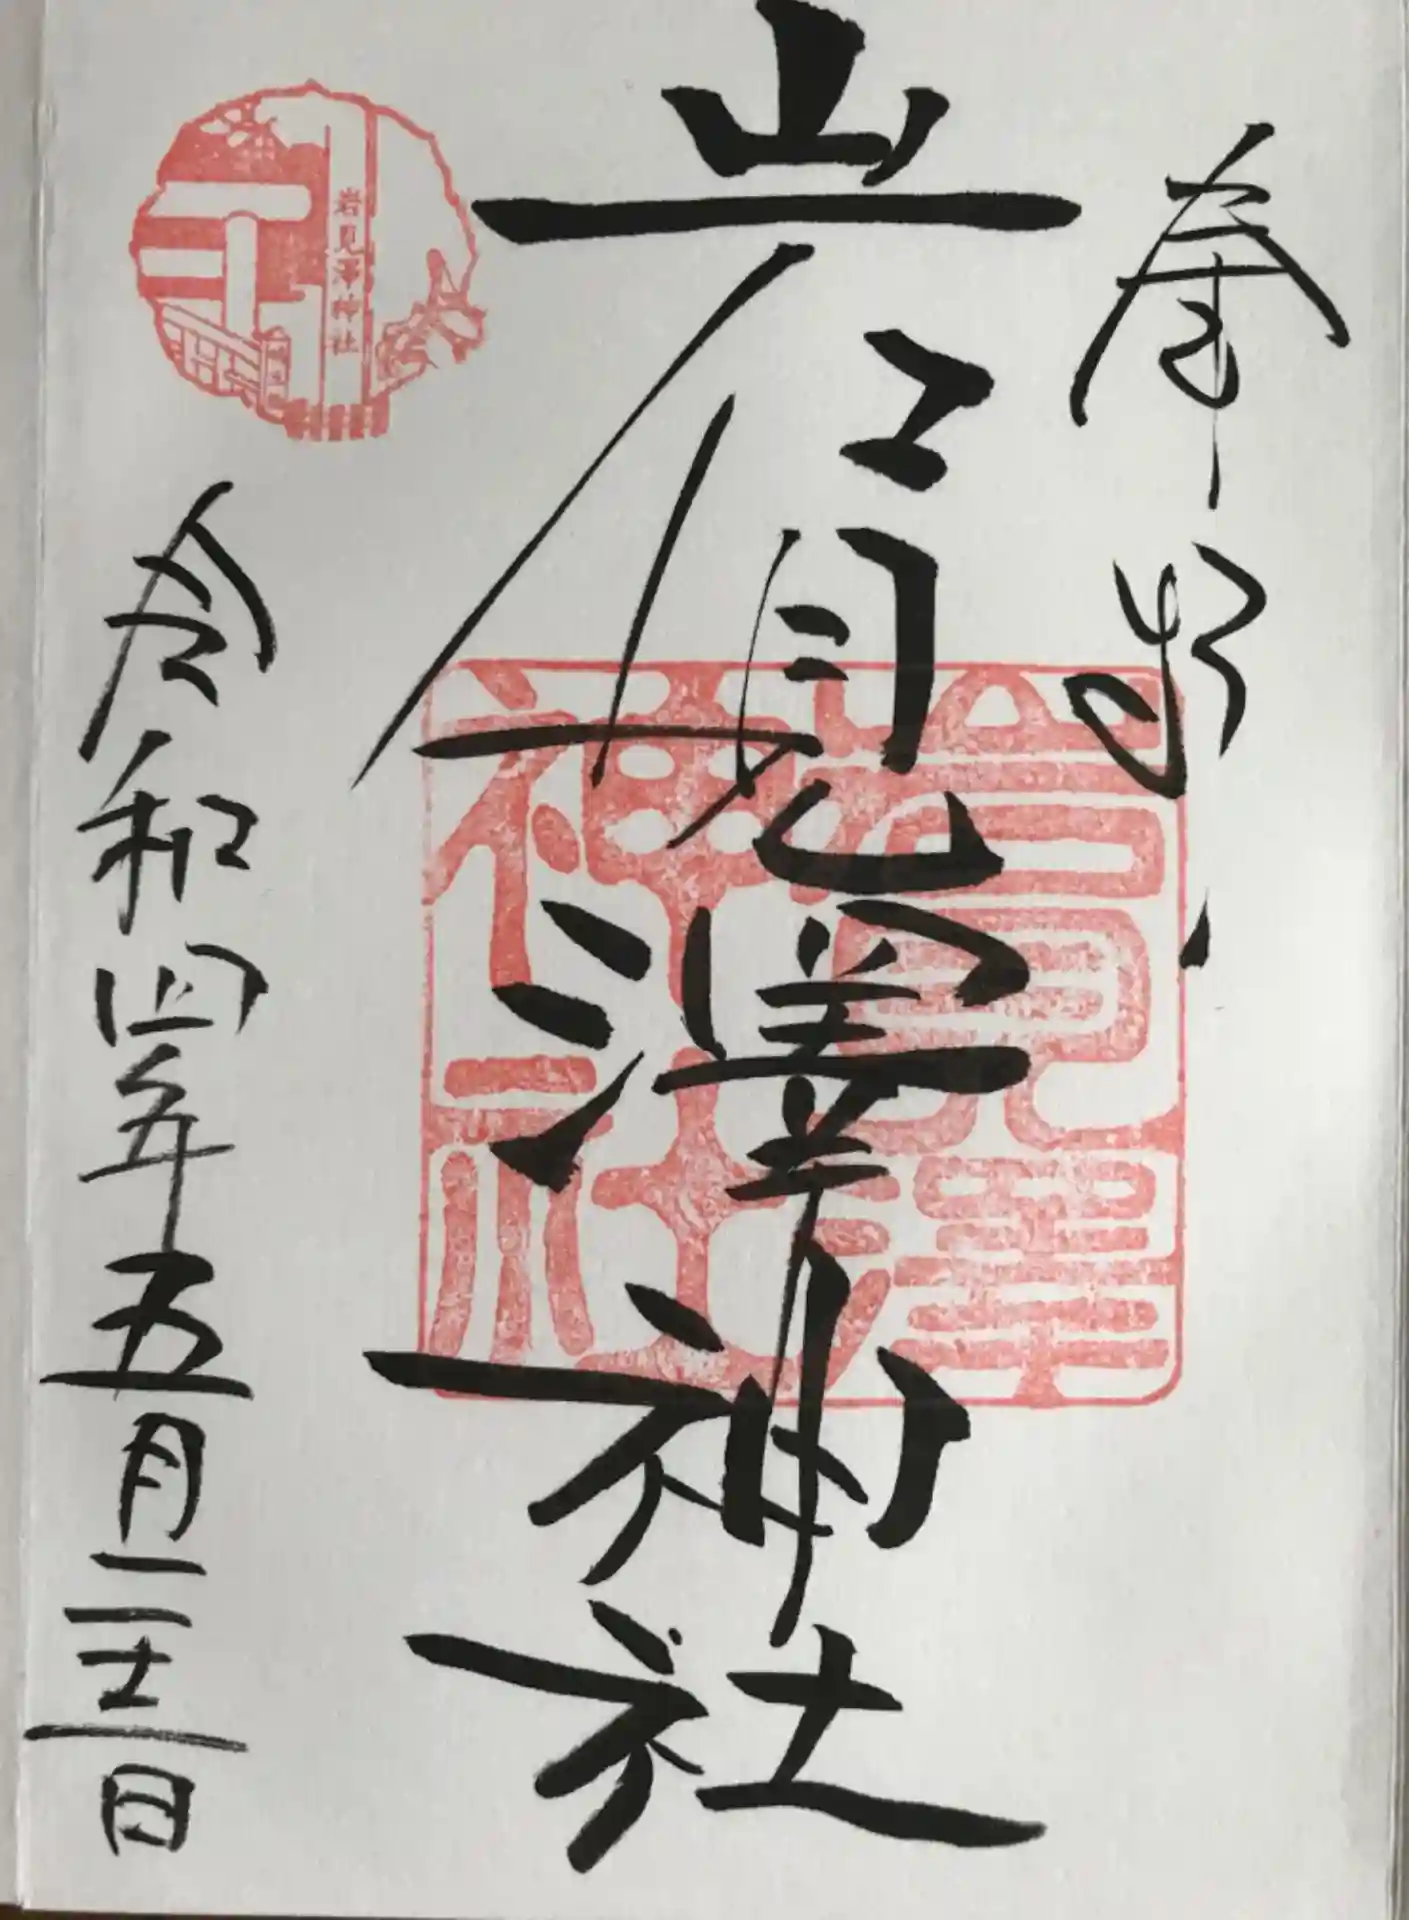 奉拝
岩見澤神社
岩見澤
神社
岩見澤神社
令和四年五月二十二日